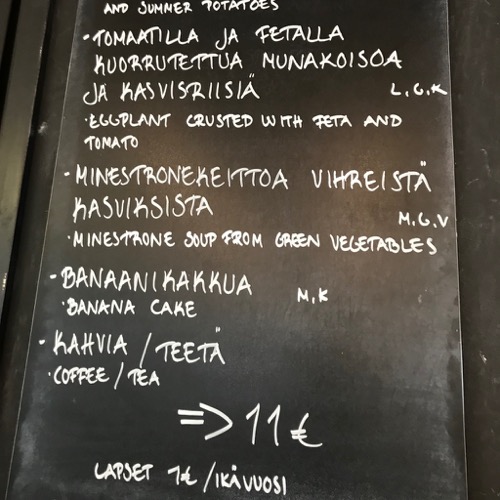 AND SUMMER POTATOES
• TOMAATILLA JA FETALLA
KUORRUTETTUA MUNAKOISOA
JA KASVISRIISIÄ L, G, K
• EGGPLANT CRUSTED WITH FETA AND
TOMATO
• MINESTRONEKEITTOA VIHREISTÄ
KASVIKSISTA
M, G, V
• MINESTRONE SOUP FROM GREEN VEGETABLES
• BANAANIKAKKUA
M, K
• BANANA CAKE
• KAHVIA / TEETÄ
• COFFEE / TEA
=> 11 €
LAPSET 1€ / IKÄVUOSI